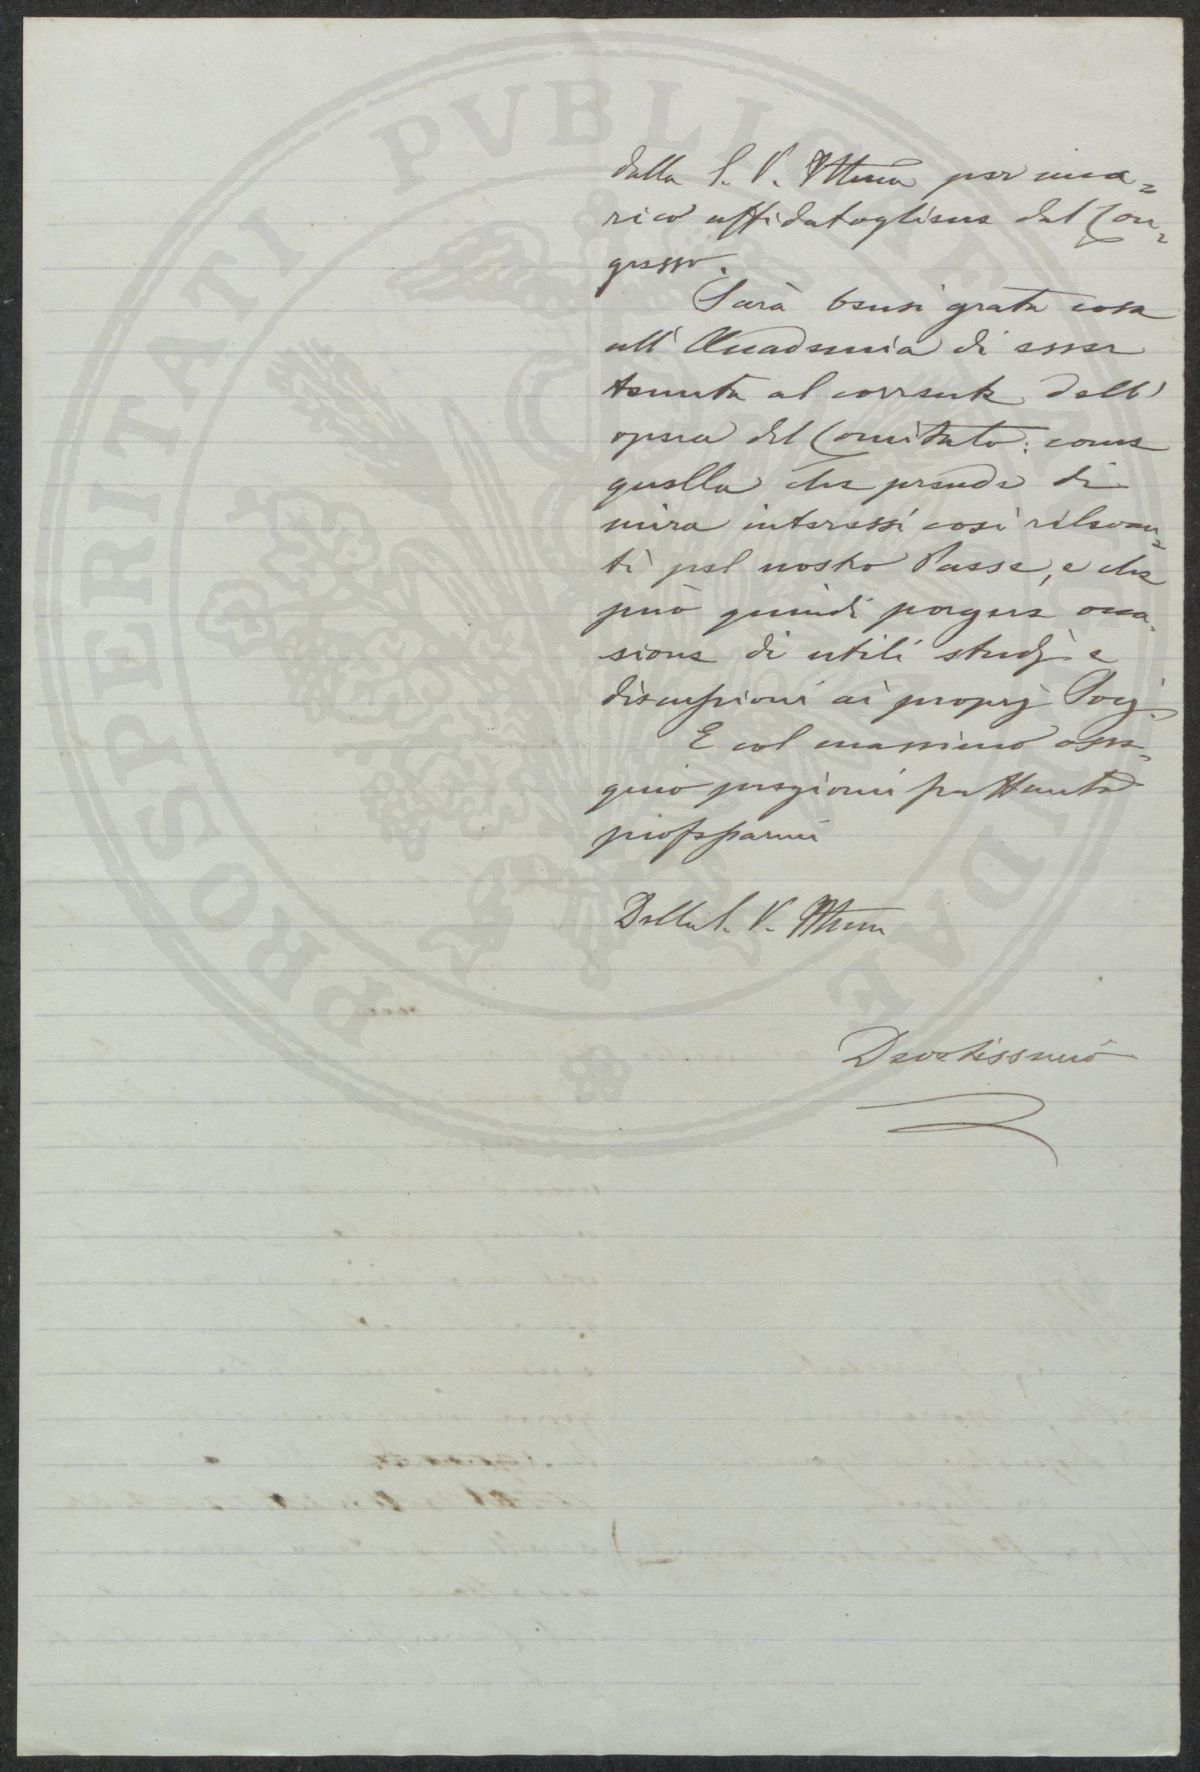 dalla S. V. Illma per inca=
rico affidatogliene dal Con=
gresso.
Sarà bensi grata cosa
all' Accademia di esser
tenuta al corrente dell'
opera del Comitato: come
quella che prende di
mira interessi così rilevan=
ti pel nostro Paese, e che
può quindi porgere occa=
sione di utili studj e
discussioni ai proprj Socj.
E col massimo osse=
quio pregiomi frattanto
professarmi
Della S. V. Illma
Devotissimo
PROSPERITATI PVBLICAE